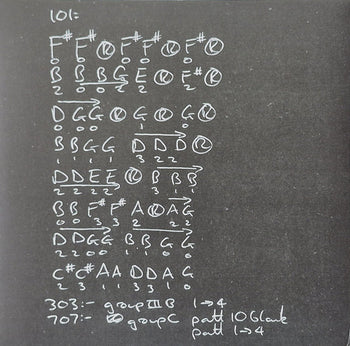 101:-
F# F# Ⓡ F# F# Ⓡ F# Ⓡ
0 0 0 0 0
B B B G E Ⓡ F# Ⓡ
2 0 0 2 2 2
D G G Ⓡ G Ⓡ G Ⓡ
0 0 0 1 0
B B G G D D D Ⓡ
1 1 1 1 3 2 2
D D E E Ⓡ B B B
2 2 2 2 3 1 1
B B F# F# A Ⓡ A G
0 0 3 3 2 2 2
D D G G B B G G
2 2 0 0 1 1 0 0
C# C# A A D D A G
2 3 1 1 3 3 1 0
303:- group III B 1→4
707:- group C patt 10 blank
patt 1→4